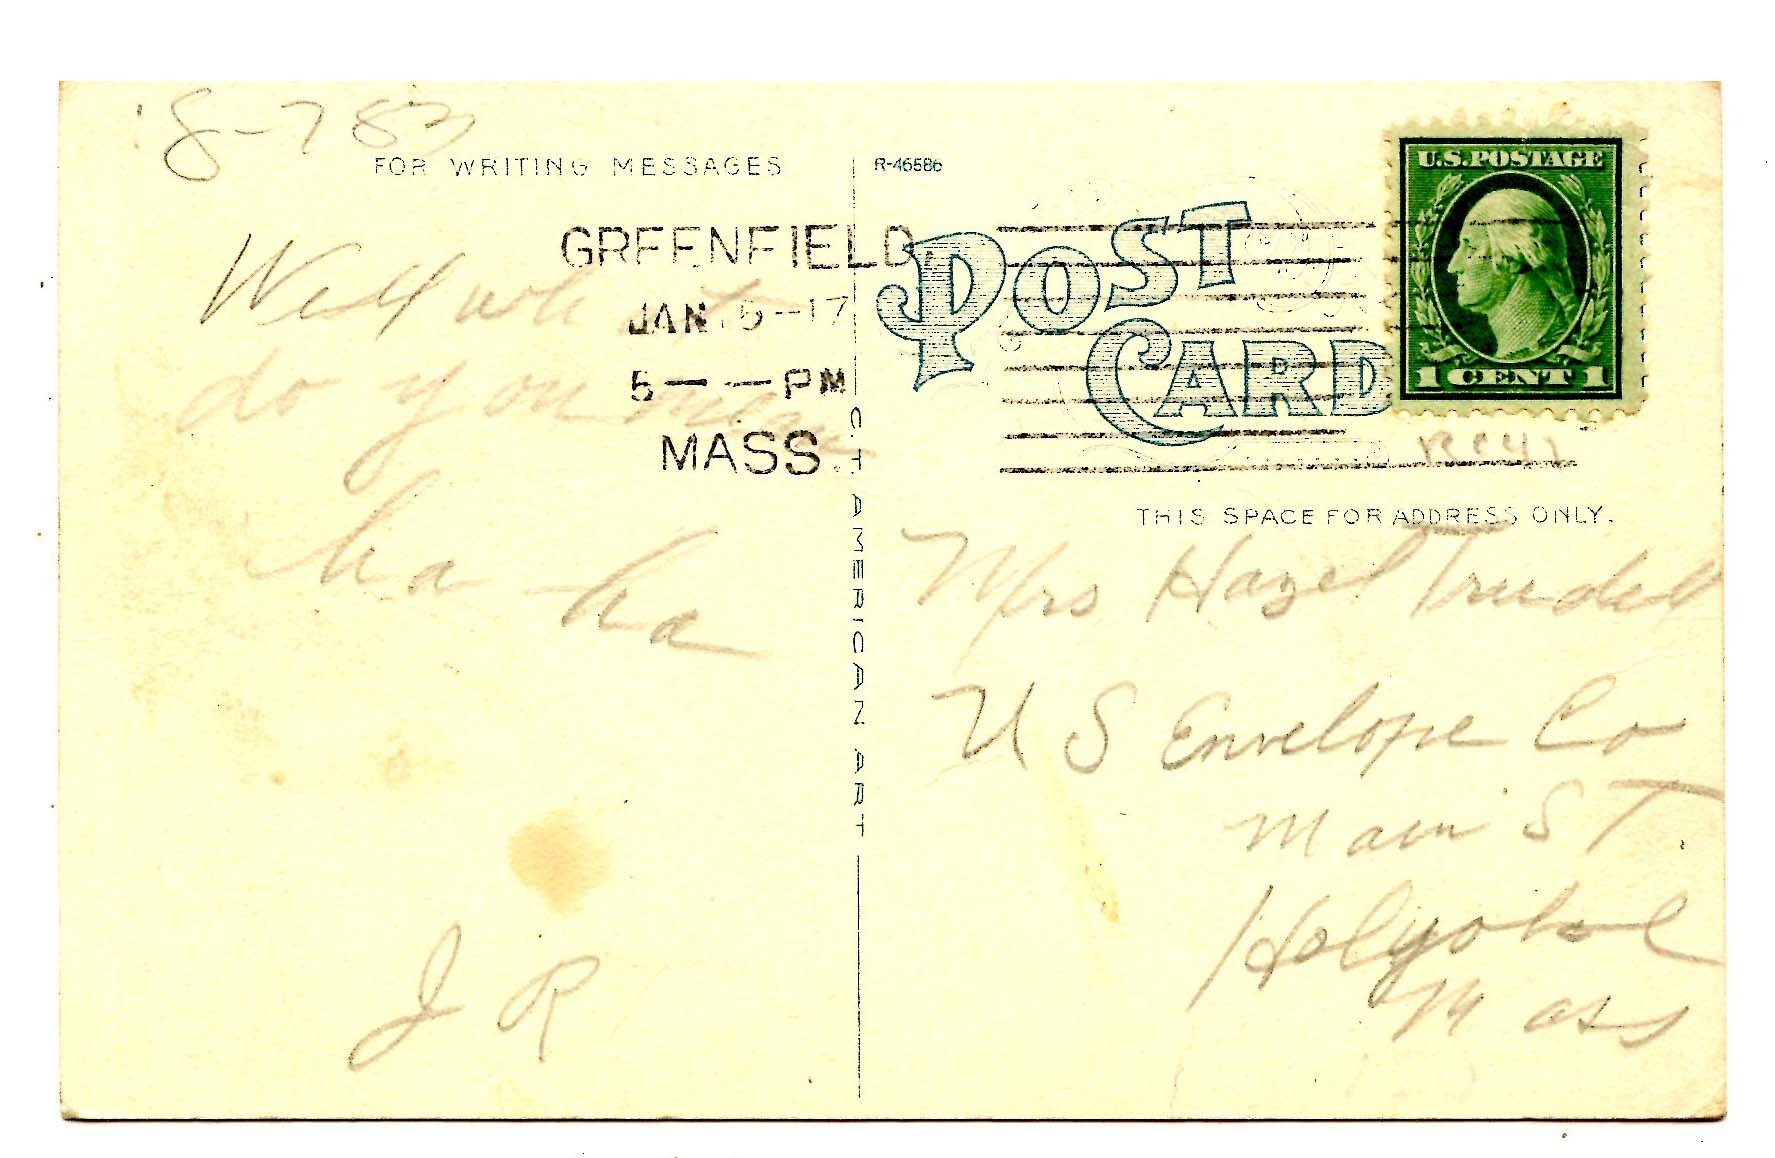 18-783
FOR WRITING MESSAGES
R-46586
GREENFIELD,
JAN. 5--17
5-- --PM
MASS.
POST
CARD
U.S. POSTAGE
1 CENT 1
C. T. AMERICAN ART
THIS SPACE FOR ADDRESS ONLY.
Well
do you
ha ha
J R
Mrs Hazel Trudell
U S Envelope Co
Main ST
Holyoke
Mass